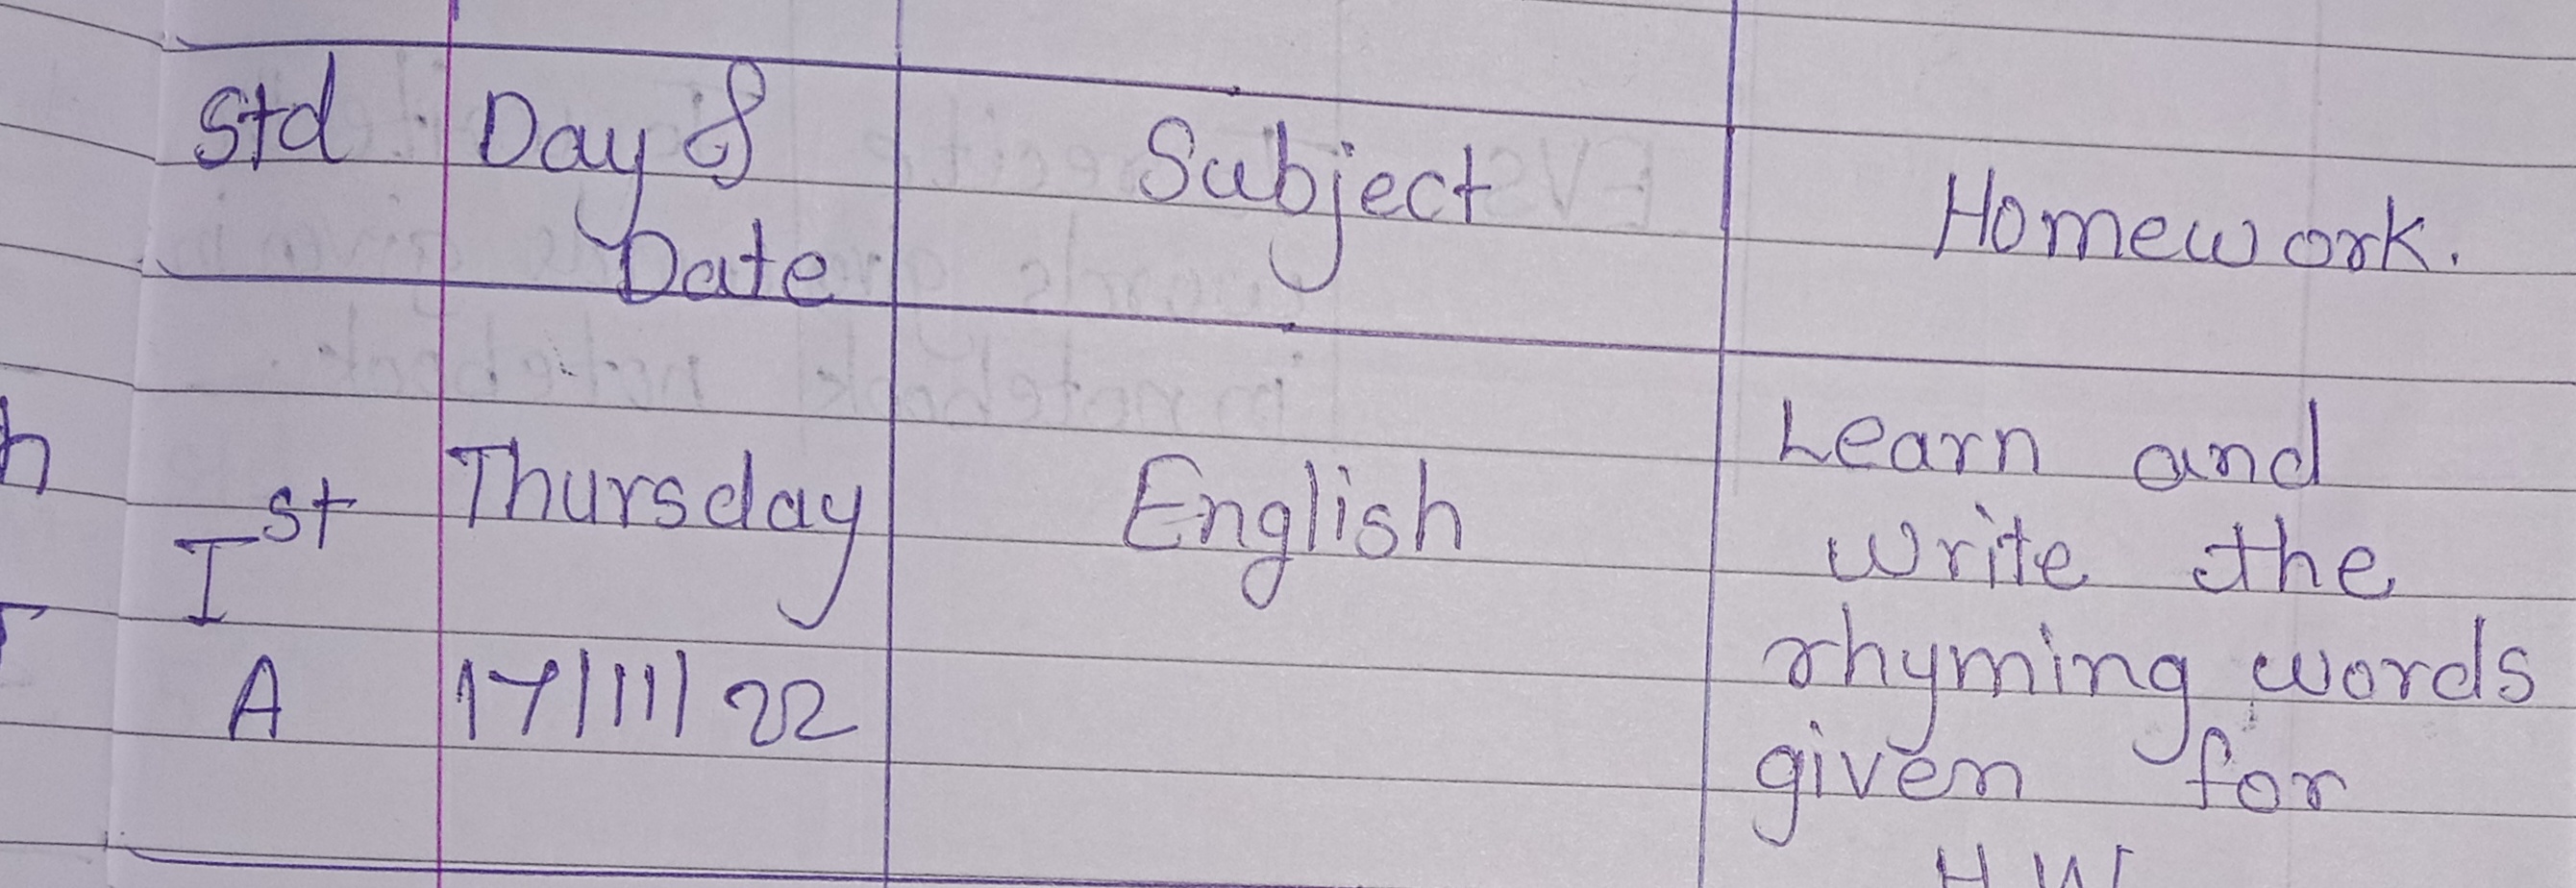 Std Day & Subject Homework.
Date
Learn and
Ist Thursday English write the
rhyming words
A 17/11/22
given for
H.W